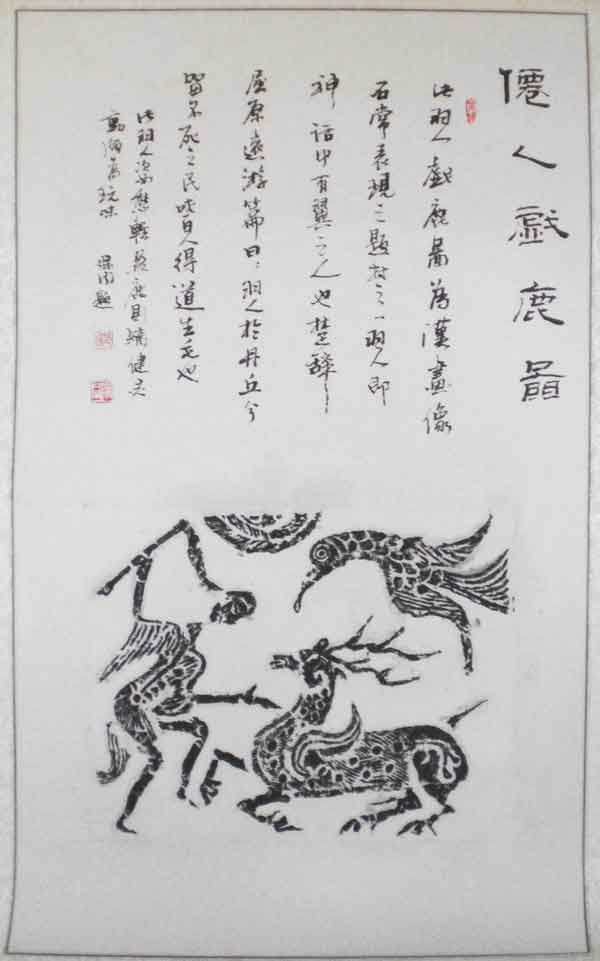 僊人戲鹿圖
此羽人戲鹿圖為漢畫像
石常表現之題材之一羽人即
神話中有翼之人也楚辭
屈原遠游篇曰羽人於丹丘兮
留不死之民或曰人得道生毛也
此羽人姿態輕盈鹿則矯健
題